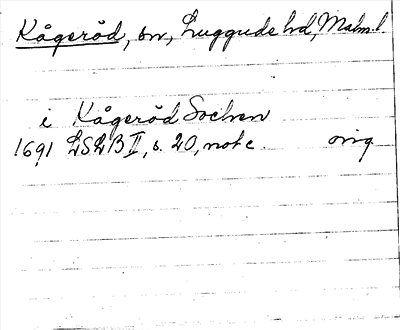 Kågeröd, sn, Luggude hd, Malm. l.
i Kågeröd Sochen
1691 LSLB II, s. 20, not c. orig